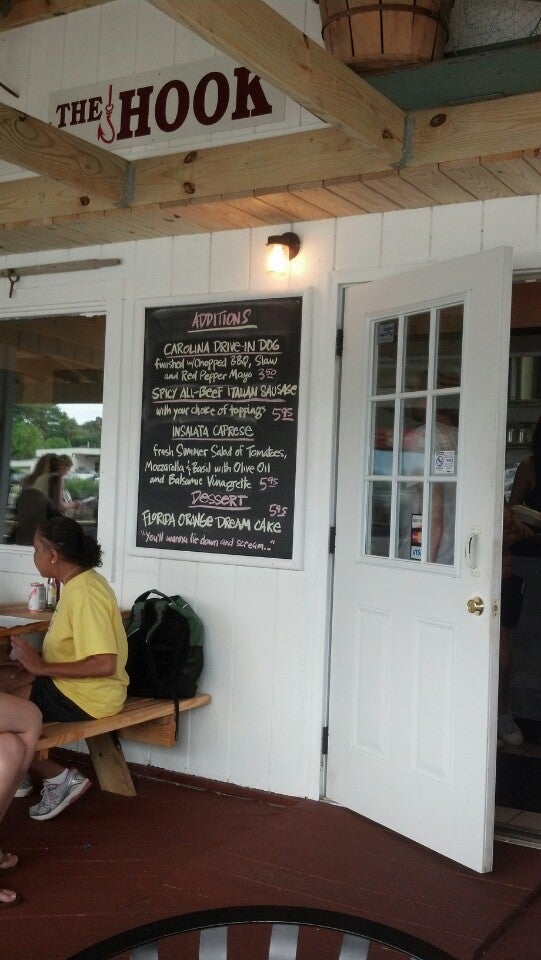 THE HOOK
ADDITIONS
CAROLINA DRIVE-IN DOG
furnished w/chopped BBQ, Slaw
and Red Pepper Mayo 3.50
SPICY ALL-BEEF ITALIAN SAUSAGE
with your choice of toppings 5.95
INSALATA CAPRESE
fresh Summer Salad of Tomatoes,
Mozzarella & Basil with Olive Oil
and Balsamic Vinagrette 5.95
DESSERT
5.95
FLORIDA ORANGE DREAM CAKE
"You'll wanna lie down and scream..."
VISA